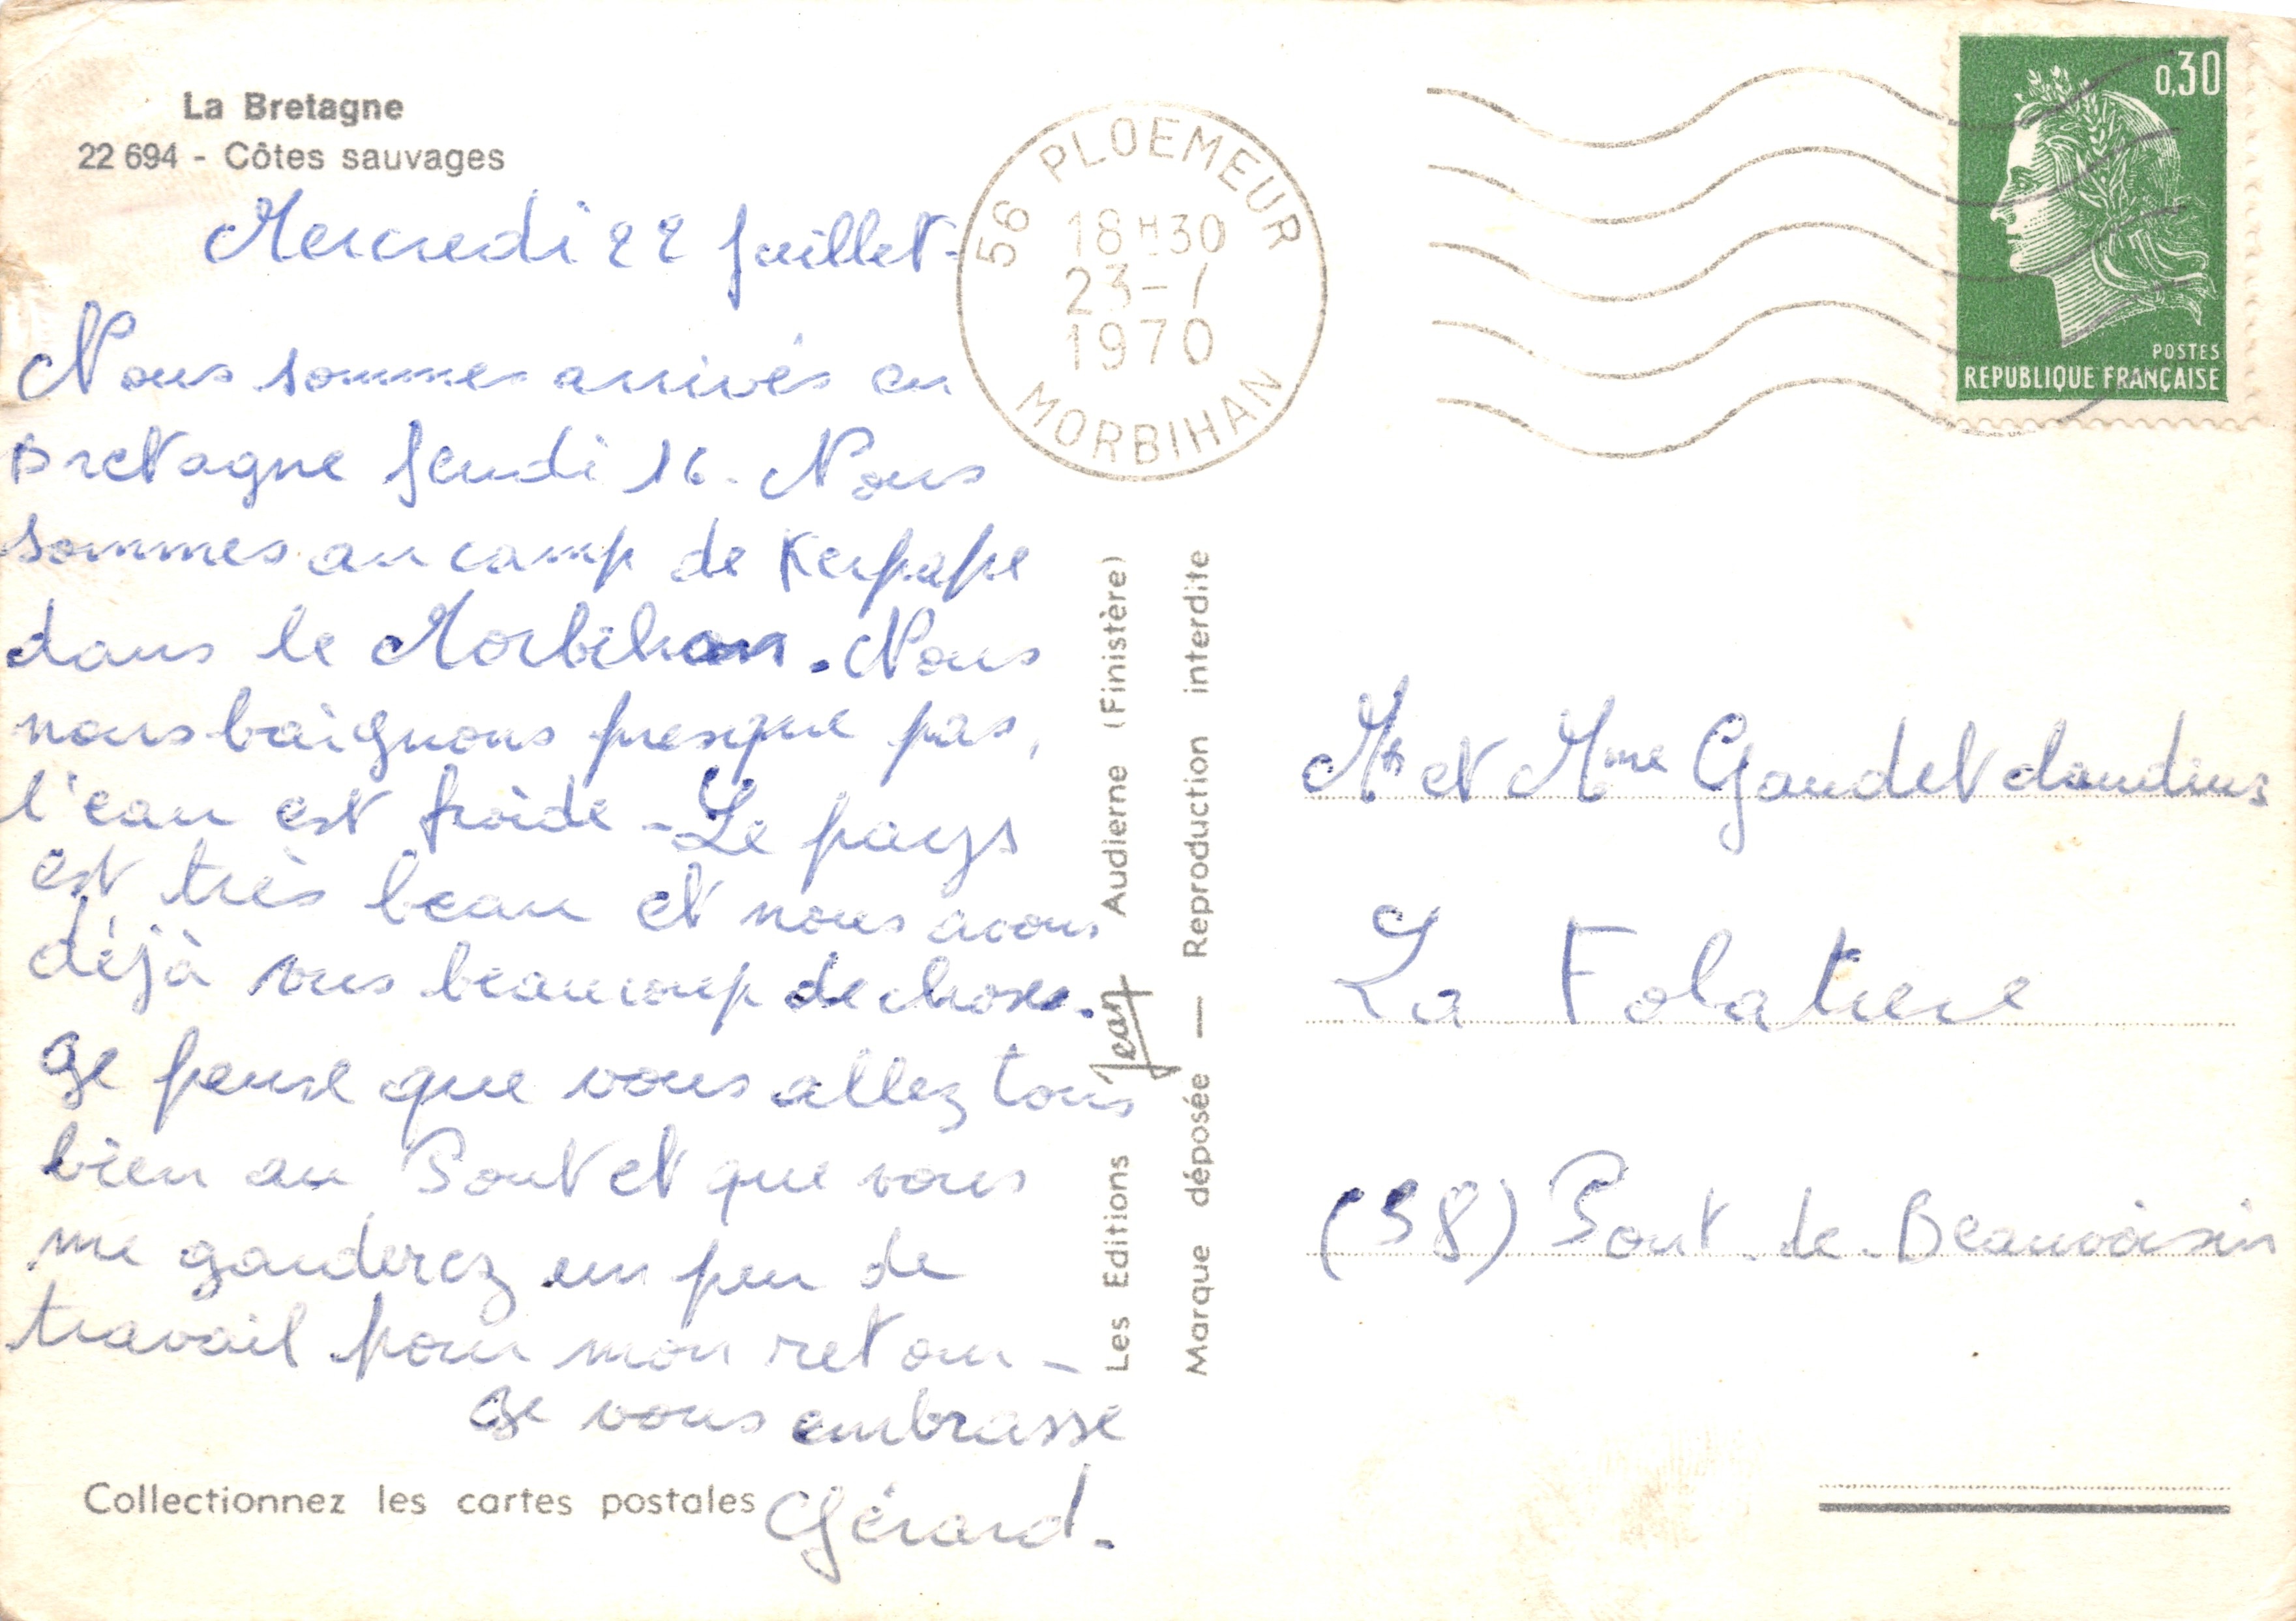 La Bretagne
22 694 - Côtes sauvages
Mercredi 22 Juillet-
Nous sommes arrivés en
Bretagne Jeudi 16. Nous
sommes au camp de Kerpape
dans le Morbihan. Nous
nous baignons presque pas,
l'eau est froide - Le pays
est très beau et nous avons
déjà vus beaucoup de choses.
Je pense que vous allez tous
bien au Pont et que vous
me garderez un peu de
travail pour mon retour -
Je vous embrasse
Gérard.
Collectionnez les cartes postales
56 PLOEMEUR
18H30
23-7
1970
MORBIHAN
0,30
POSTES
REPUBLIQUE FRANÇAISE
Les Editions Jean Audierne (Finistère)
Marque déposée — Reproduction interdite
Mr et Mme Gaudet claudius
La Folatiere
(38) Pont-de-Beauvoisin